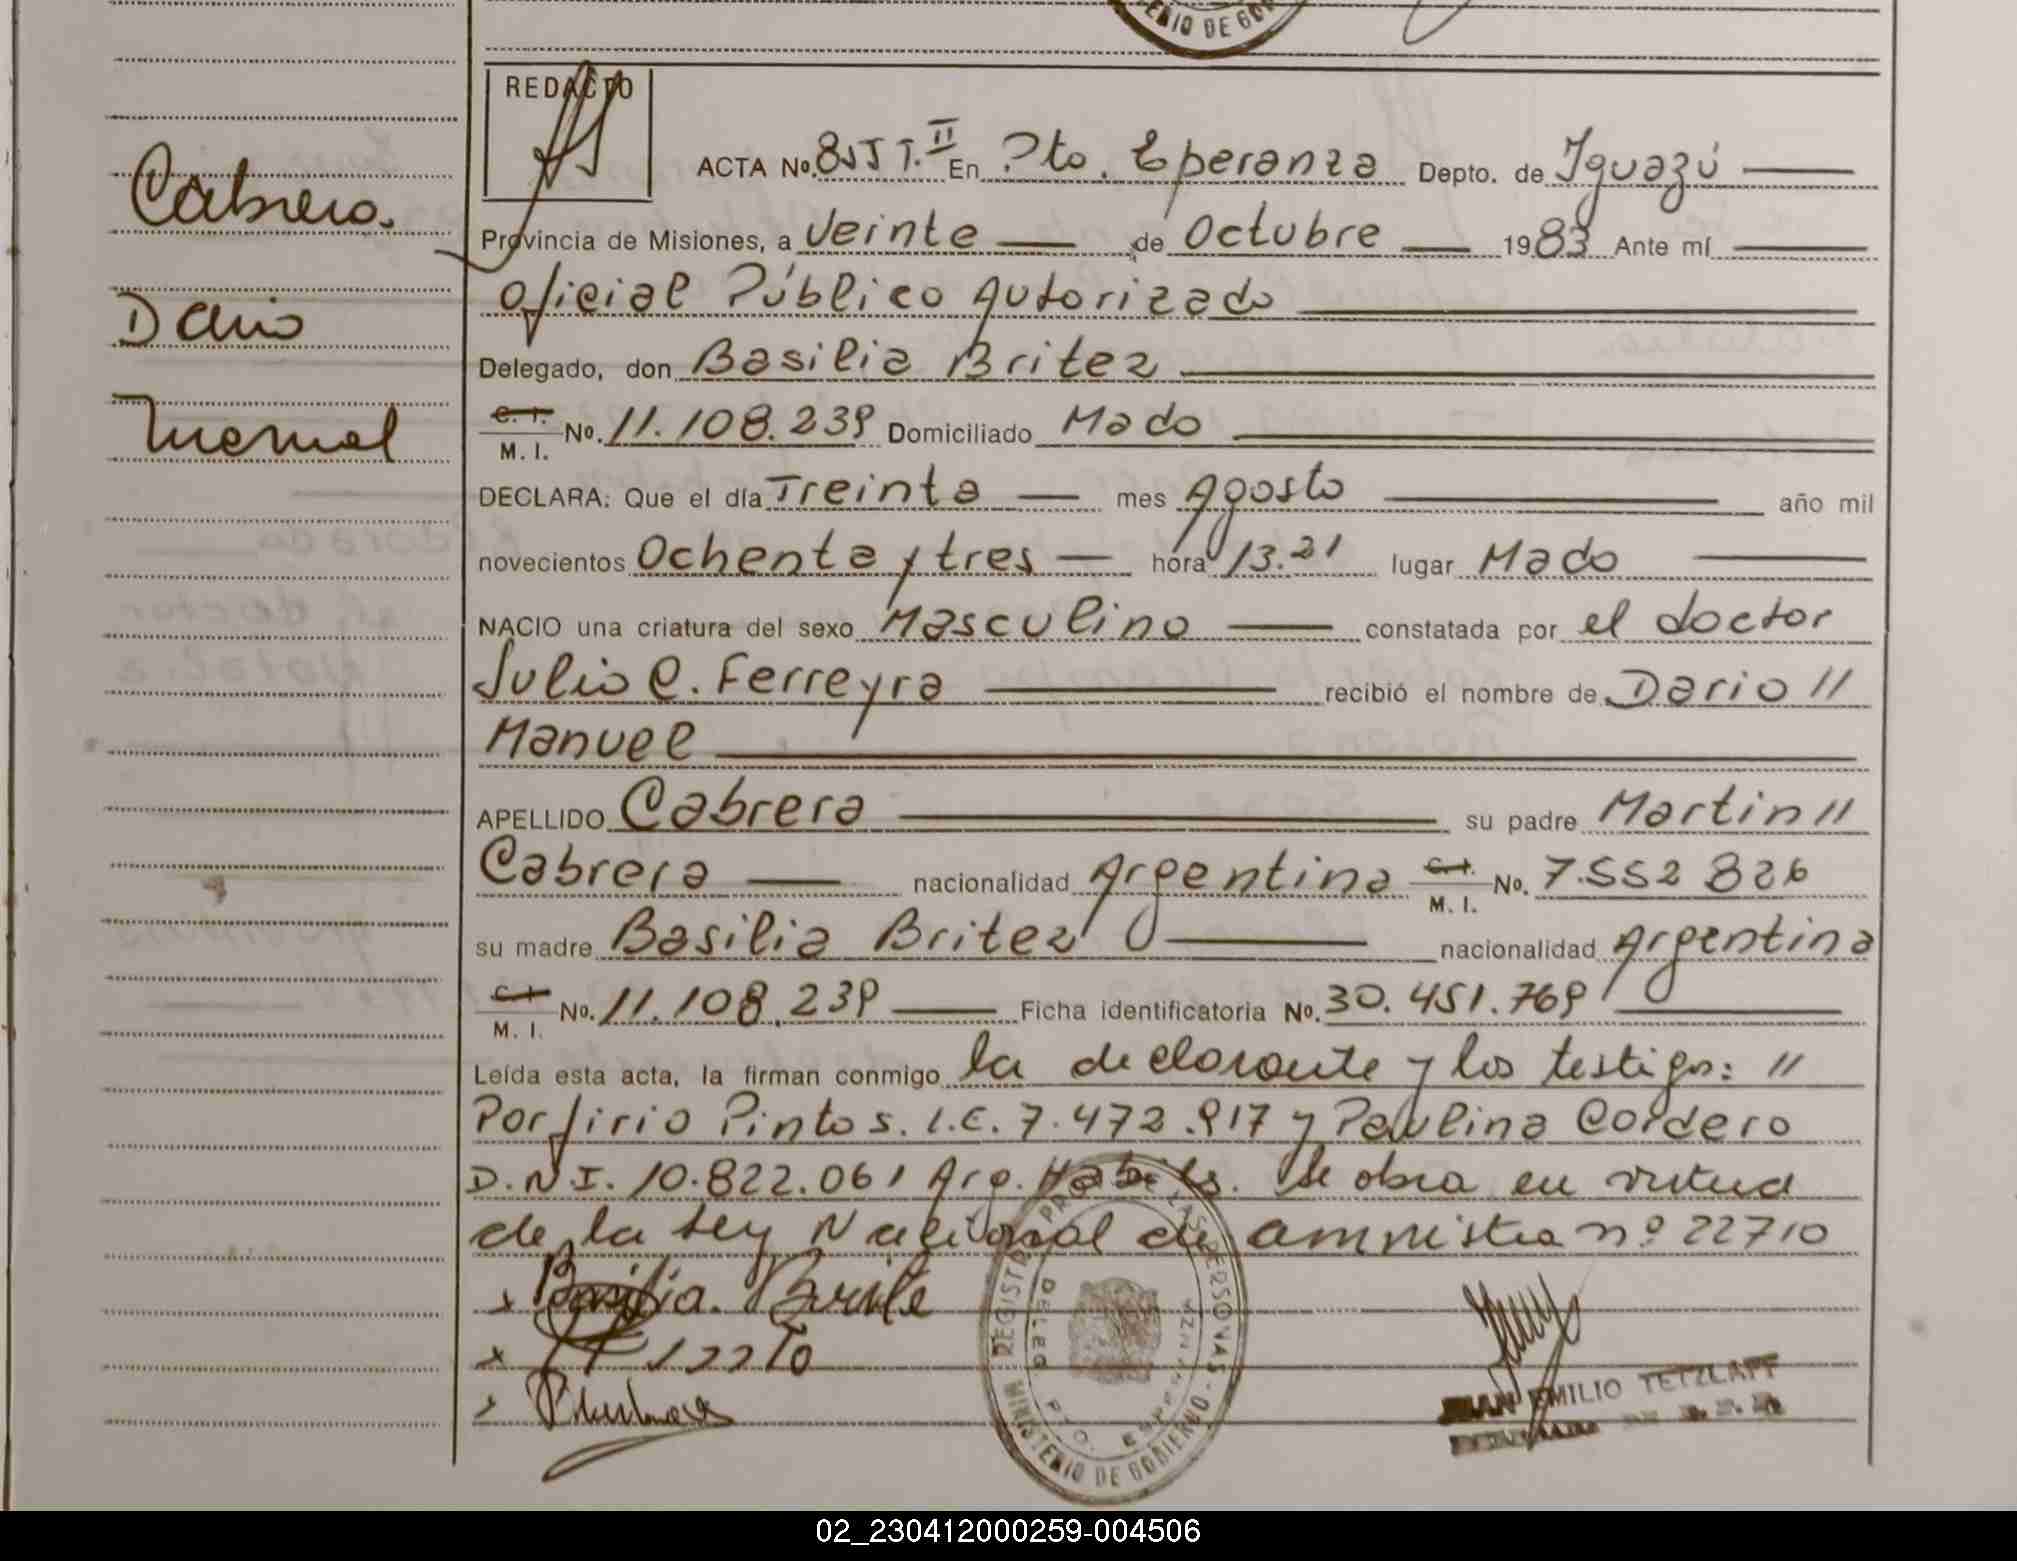 ENIO DE GOB
REDACTO
ACTA No. 855 T. II En Pto. Eperanza Depto. de Iguazú
Cabrera.
Provincia de Misiones, a Veinte de Octubre 1983 Ante mí
Oficial Público Autorizado
Dario
Delegado, don Basilia Britez
Manuel
C. I. M. I. No. 11.108.239 Domiciliado Mado
DECLARA: Que el día Treinta mes Agosto año mil
novecientos Ochenta y tres hora 13.21 lugar Mado
NACIO una criatura del sexo Masculino constatada por el doctor
Julio C. Ferreyra recibió el nombre de Dario //
Manuel
APELLIDO Cabrera su padre Martin //
Cabrera nacionalidad Argentina C. I. M. I. No. 7.552 826
su madre Basilia Britez nacionalidad Argentina
C. I. M. I. No. 11.108.239 Ficha identificatoria No. 30.451.769
Leída esta acta, la firman conmigo la declarante y los testigos: //
Porfirio Pintos. L.E. 7.472.917 y Paulina Cordero
D.N.I. 10.822.061 Arg. Habils. Se obra en virtud
de la Ley Nacional de amnistia nº 22710
x Basilia Brite
REGISTRO PROV. LAS PERSONAS - MINISTERIO DE GOBIERNO
DELEG. PTO. ESPERANZA
JUAN EMILIO TETZLAFF
02_230412000259-004506